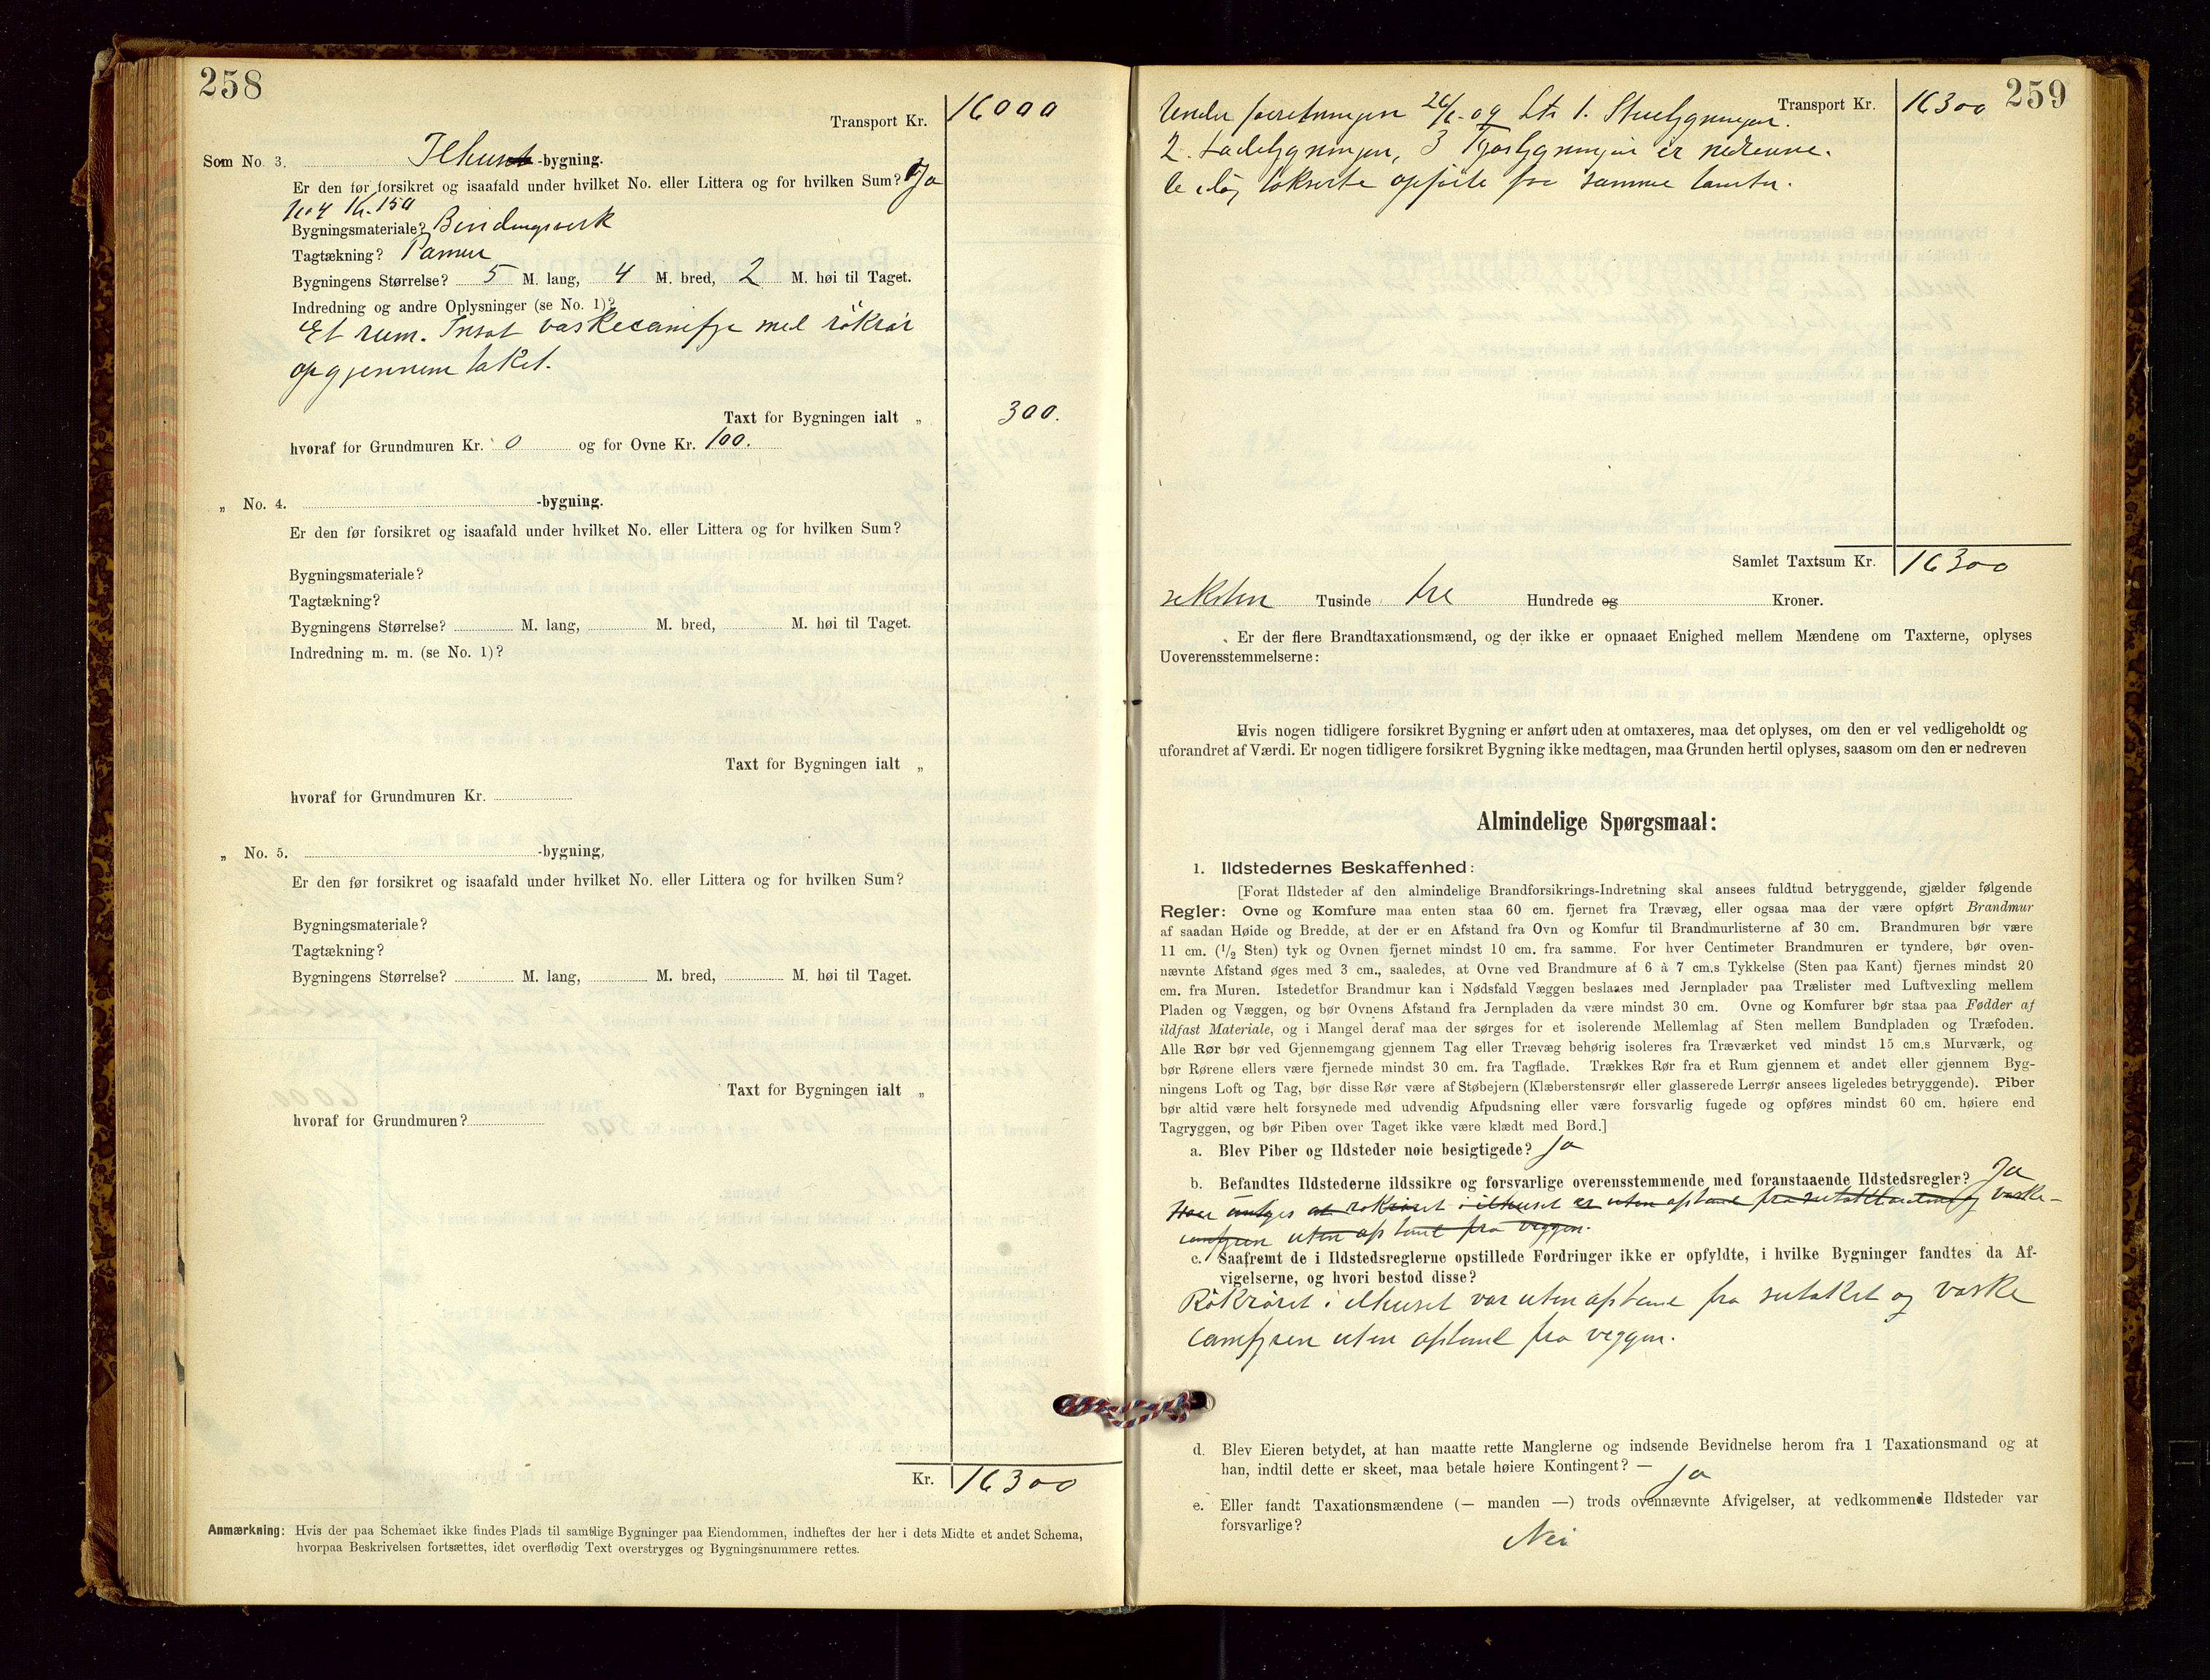 258
Transport Kr. 16000
Som No. 3. Ilhust-bygning.
Er den før forsikret og isaafald under hvilket No. eller Littera og for hvilken Sum? Ja
No 4 Kr. 150
Bygningsmateriale? Bindingsverk
Tagtækning? Panner
Bygningens Størrelse? 5 M. lang, 4 M. bred, 2 M. høi til Taget.
Indredning og andre Oplysninger (se No. 1)?
Et rum. Insat vaskecamfyr med rökrör
op gjennem taket.
Taxt for Bygningen ialt „ 300.
hvoraf for Grundmuren Kr. 0 og for Ovne Kr. 100.
„ No. 4. -bygning.
Er den før forsikret og isaafald under hvilket No. eller Littera og for hvilken Sum?
Bygningsmateriale?
Tagtækning?
Bygningens Størrelse? M. lang, M. bred, M. høi til Taget.
Indredning m. m. (se No. 1)?
Taxt for Bygningen ialt „
hvoraf for Grundmuren Kr.
„ No. 5. -bygning,
Er den før forsikret og isaafald under hvilket No. eller Littera og for hvilken Sum?
Bygningsmateriale?
Tagtækning?
Bygningens Størrelse? M. lang, M. bred, M. høi til Taget.
Taxt for Bygningen ialt „
hvoraf for Grundmuren?
Kr. 16300
Anmærkning: Hvis der paa Schemaet ikke findes Plads til samtlige Bygninger paa Eiendommen, indheftes der her i dets Midte et andet Schema,
hvorpaa Beskrivelsen fortsættes, idet overflødig Text overstryges og Bygningsnummere rettes.
259
Transport Kr. 16300
Under forretningen 09 1. Stuebygningen.
2. Ladebygningen, 3 er nedrevne.
takserte opførte paa samme tomter.
Samlet Taxtsum Kr. 16300
seksten Tusinde tre Hundrede og Kroner.
Er der flere Brandtaxationsmænd, og der ikke er opnaaet Enighed mellem Mændene om Taxterne, oplyses
Uoverensstemmelserne:
Hvis nogen tidligere forsikret Bygning er anført uden at omtaxeres, maa det oplyses, om den er vel vedligeholdt og
uforandret af Værdi. Er nogen tidligere forsikret Bygning ikke medtagen, maa Grunden hertil oplyses, saasom om den er nedreven
Almindelige Spørgsmaal:
1. Ildstedernes Beskaffenhed:
[Forat Ildsteder af den almindelige Brandforsikrings-Indretning skal ansees fuldtud betryggende, gjælder følgende
Regler: Ovne og Komfure maa enten staa 60 cm. fjernet fra Trævæg, eller ogsaa maa der være opført Brandmur
af saadan Høide og Bredde, at der er en Afstand fra Ovn og Komfur til Brandmurlisterne af 30 cm. Brandmuren bør være
11 cm. (1/2 Sten) tyk og Ovnen fjernet mindst 10 cm. fra samme. For hver Centimeter Brandmuren er tyndere, bør oven-
nævnte Afstand øges med 3 cm., saaledes, at Ovne ved Brandmure af 6 à 7 cm.s Tykkelse (Sten paa Kant) fjernes mindst 20
cm. fra Muren. Istedetfor Brandmur kan i Nødsfald Væggen beslaaes med Jernplader paa Trælister med Luftvexling mellem
Pladen og Væggen, og bør Ovnens Afstand fra Jernpladen da være mindst 30 cm. Ovne og Komfurer bør staa paa Fødder af
ildfast Materiale, og i Mangel deraf maa der sørges for et isolerende Mellemlag af Sten mellem Bundpladen og Træfoden.
Alle Rør bør ved Gjennemgang gjennem Tag eller Trævæg behørig isoleres fra Træværket ved mindst 15 cm.s Murværk, og
bør Rørene ellers være fjernede mindst 30 cm. fra Tagflade. Trækkes Rør fra et Rum gjennem et andet eller gjennem Byg-
ningens Loft og Tag, bør disse Rør være af Støbejern (Klæberstensrør eller glasserede Lerrør ansees ligeledes betryggende). Piber
bør altid være helt forsynede med udvendig Afpudsning eller være forsvarlig fugede og opføres mindst 60 cm. høiere end
Tagryggen, og bør Piben over Taget ikke være klædt med Bord.]
a. Blev Piber og Ildsteder nøie besigtigede? Ja
b. Befandtes Ildstederne ildssikre og forsvarlige overensstemmende med foranstaaende Ildstedsregler? Ja
at rökröret i ilhuset er uten afstand fra og vaske-
camfyren uten afstand fra veggen.
c. Saafremt de i Ildstedsreglerne opstillede Fordringer ikke er opfyldte, i hvilke Bygninger fandtes da Af-
vigelserne, og hvori bestod disse?
Rökröret i ilhuset var uten afstand fra sutaket og vaske
camfyren uten afstand fra veggen.
d. Blev Eieren betydet, at han maatte rette Manglerne og indsende Bevidnelse herom fra 1 Taxationsmand og at
han, indtil dette er skeet, maa betale høiere Kontingent? — Ja
e. Eller fandt Taxationsmændene (— manden —) trods ovennævnte Afvigelser, at vedkommende Ildsteder var
forsvarlige?
Nei